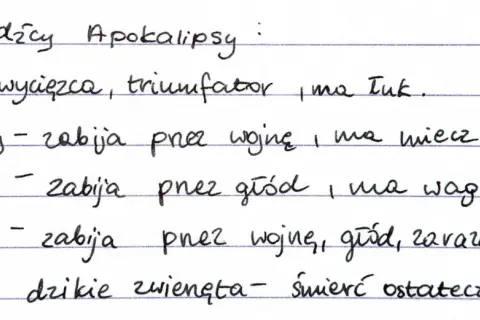 dźcy Apokalipsy :
wycięzca, triumfator, ma łuk.
y – zabija przez wojnę, ma miecz
– zabija przez głód, ma wag
– zabija przez wojnę, głód, zaraz
dzikie zwierzęta – śmierć ostatecz